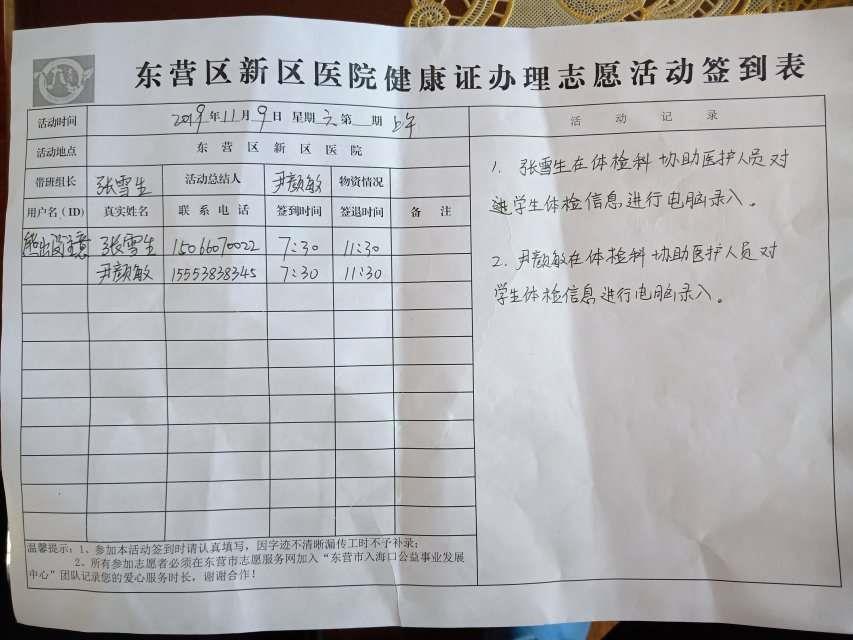 东营区新区医院健康证办理志愿活动签到表
活动时间 2019年11月9日 星期六第 期 上午
活动地点 东营区新区医院
带班组长 张雪生 活动总结人 尹颜敏 物资情况
用户名(ID) 真实姓名 联系电话 签到时间 签退时间 备注
熊出没注意 张雪生 15066070022 7:30 11:30
尹颜敏 15553838345 7:30 11:30
温馨提示:1、参加本活动签到时请认真填写,因字迹不清晰漏传工时不予补录;
2、所有参加志愿者必须在东营市志愿服务网加入“东营市入海口公益事业发展
中心”团队记录您的爱心服务时长,谢谢合作!
活动记录
1. 张雪生在体检科协助医护人员对
学生体检信息进行电脑录入。
2. 尹颜敏在体检科协助医护人员对
学生体检信息进行电脑录入。